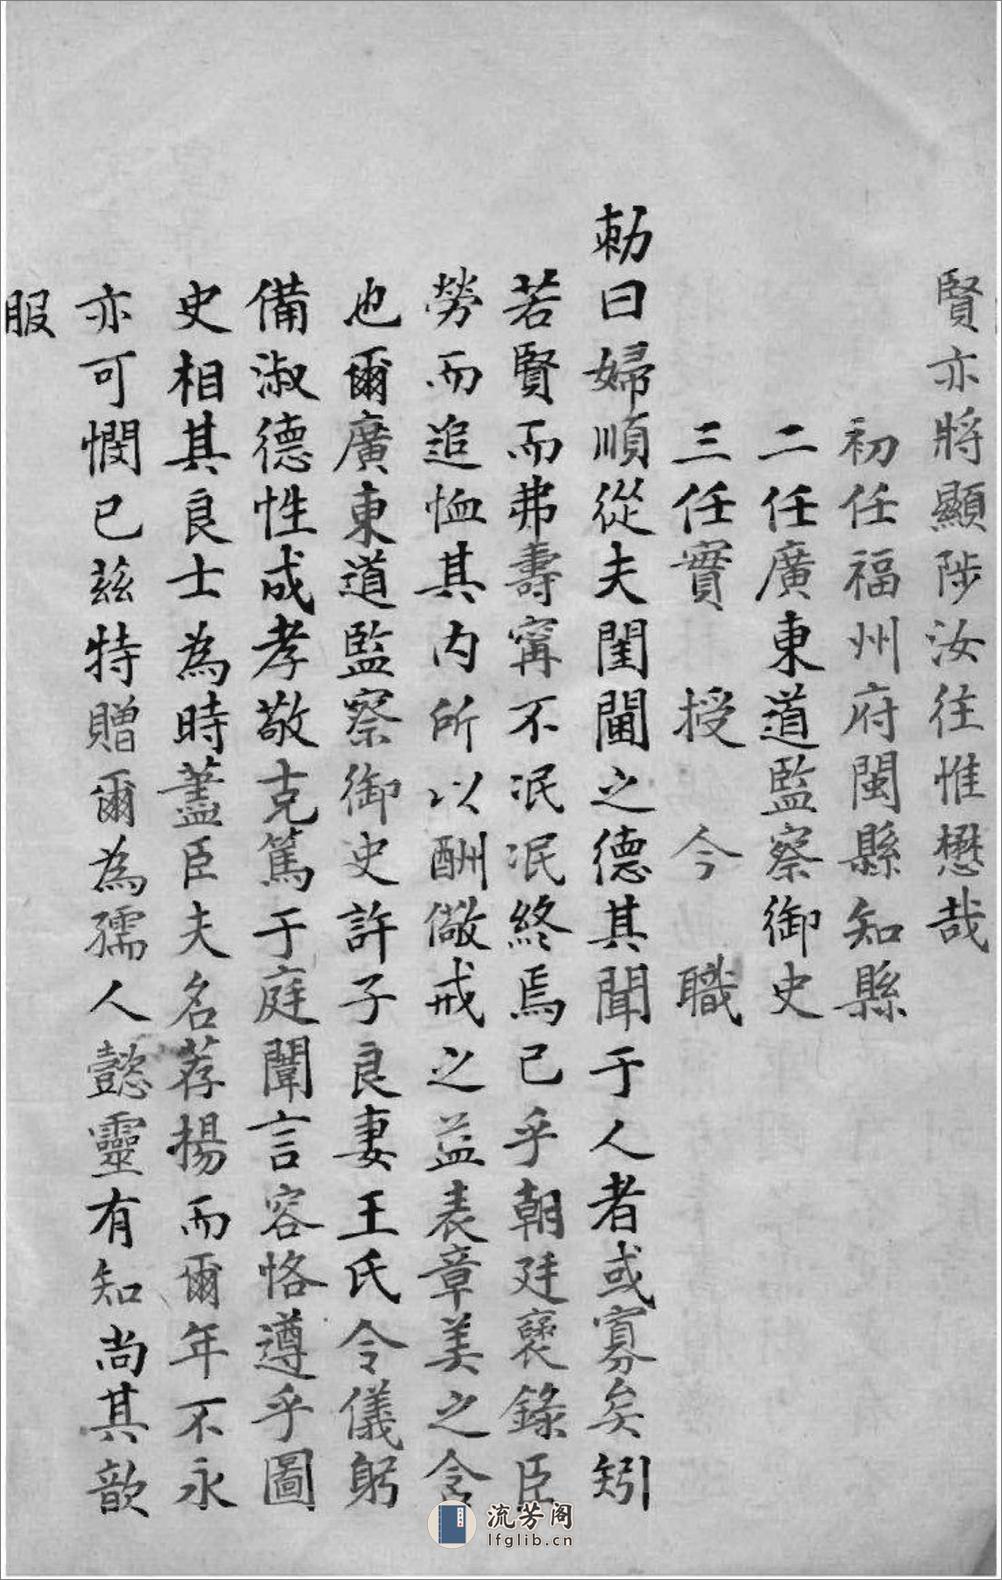 賢亦將顯陟汝往惟懋哉
初任福州府閩縣知縣
二任廣東道監察御史
三任實授今職
勅曰婦順從夫閨閫之德其聞于人者或寡矣矧
若賢而弗壽寗不泯泯終焉已乎朝廷褒錄臣
勞而追恤其内所以酬儆戒之益表章美之含
也爾廣東道監察御史許子良妻王氏令儀躬
備淑德性成孝敬克篤于庭闈言容恪遵乎圖
史相其良士為時藎臣夫名荐揚而爾年不永
亦可憫已茲特贈爾為孺人懿靈有知尚其歆
服
流芳阁
lfglib.cn